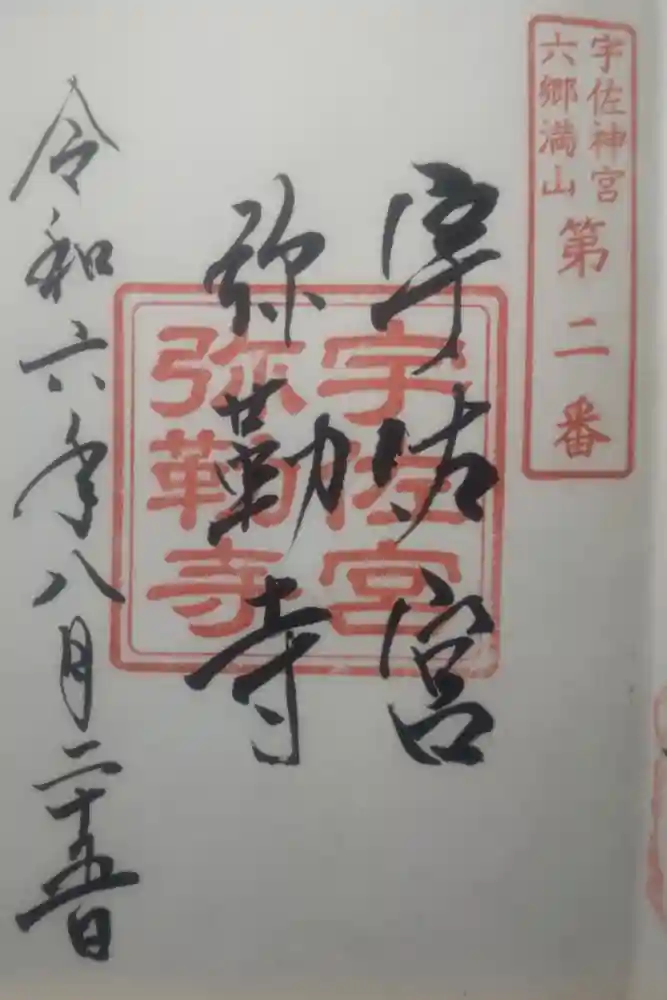 宇佐神宮
六郷満山
第二番
宇佐宮
弥勒寺
宇佐宮
弥勒寺
令和六年八月二十五日